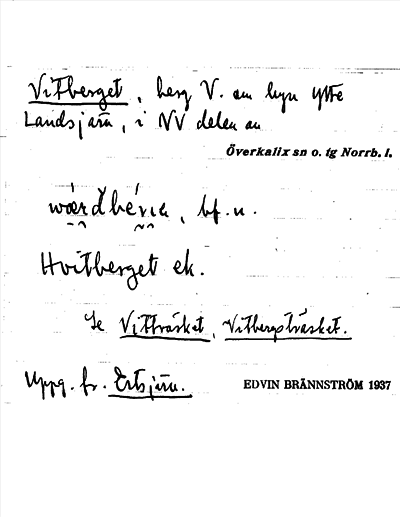 Vitberget, berg V. om byn Yttre
Landsjärv, i NV delen av
Överkalix sn o. tg Norrb. l.
bf. n.
Hvitberget ek.
Se Vitträsket, Vitbergsträsket.
Uppg. fr. Ertsjärv.
EDVIN BRÄNNSTRÖM 1937